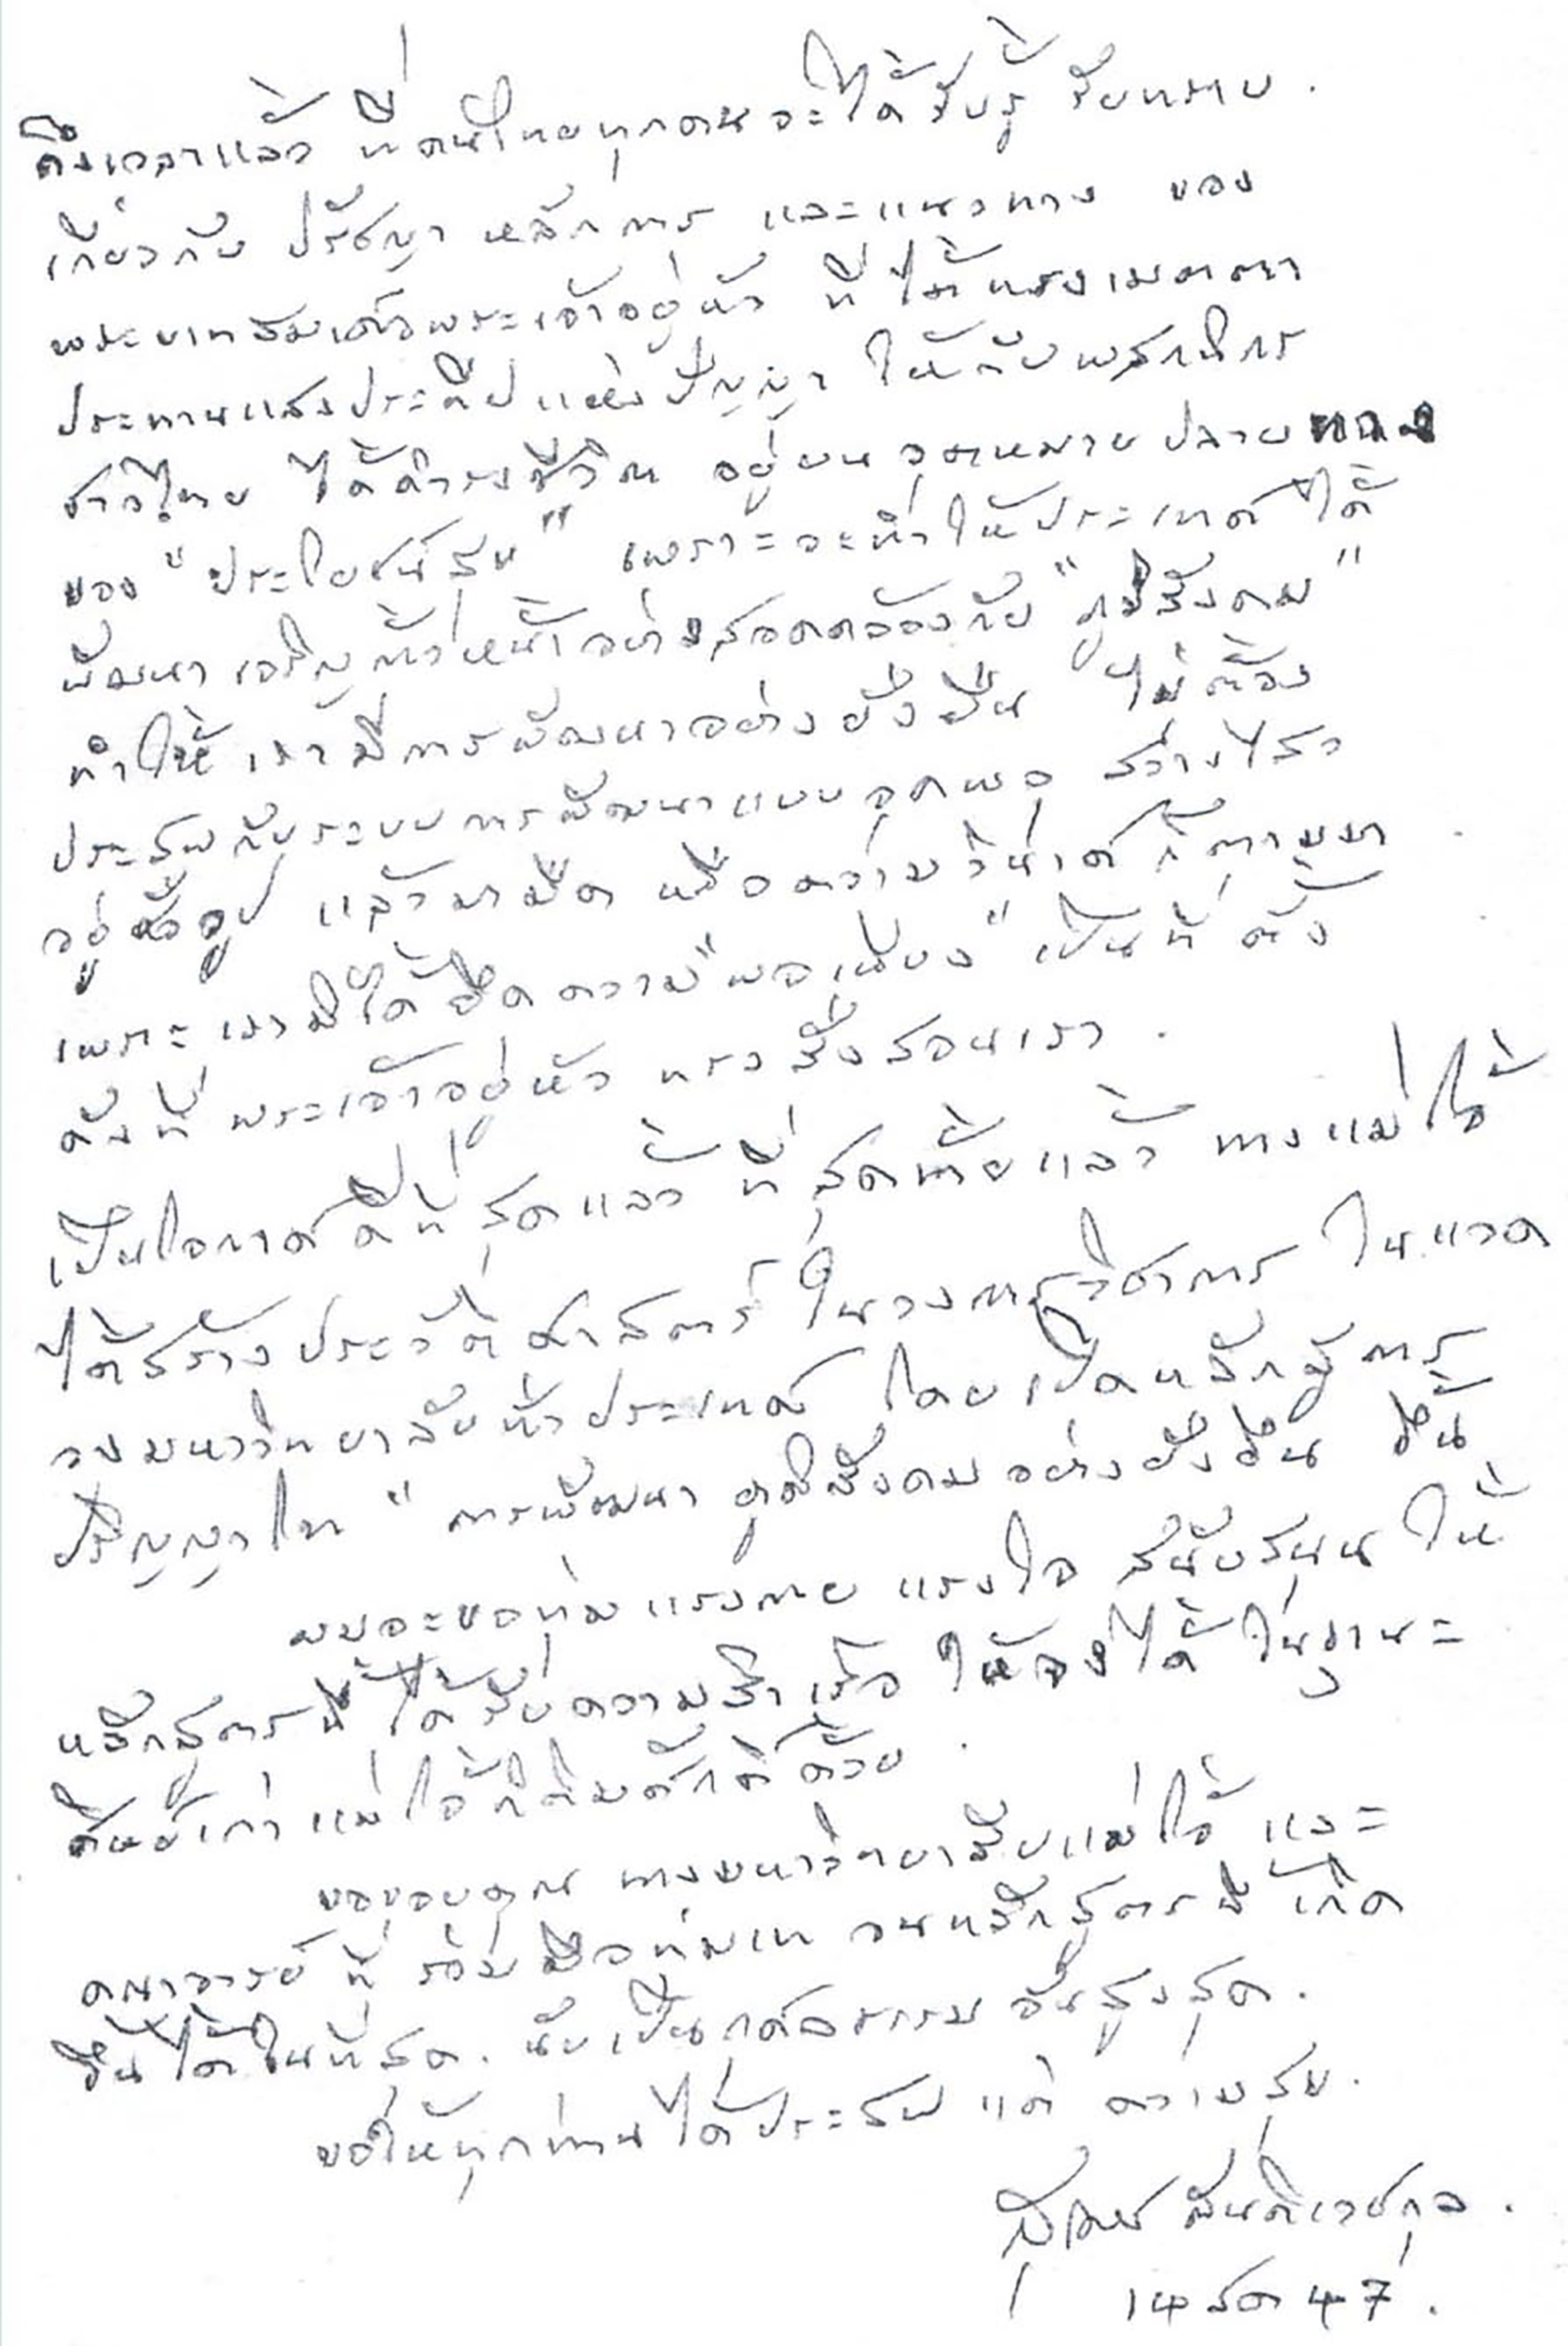 ถึงเวลาแล้ว ที่คนไทยทุกคนจะได้รับรู้ รับทราบ.
เกี่ยวกับ ปรัชญา หลักการ และแนวทาง ของ
พระบาทสมเด็จพระเจ้าอยู่หัว ที่ได้ทรงเมตตา
ประทานแสงประทีปแห่งปัญญา ให้กับพสกนิกร
ชาวไทย ได้ดำรงชีวิต อยู่บนจุดหมายปลายทาง
ของ "ประโยชน์สุข" เพราะจะทำให้ประเทศได้
พัฒนา เจริญก้าวหน้าอย่างสอดคล้องกับ "ภูมิสังคม"
ทำให้ เรามีการพัฒนาอย่างยั่งยืน ไม่ต้อง
ประสพกับระบบการพัฒนาแบบจุดพลุ สว่างไสว
อยู่ชั่ววูบ แล้วมามืด หรือความวินาศ ก็ตามมา
เพราะ เรามิได้ยึดความ "พอเพียง" เป็นที่ตั้ง
ดังที่ พระเจ้าอยู่หัว ทรงสั่งสอนเรา.
เป็นโอกาสดีที่สุดแล้ว ที่สุดท้ายแล้ว ทางแม่โจ้
ได้สร้างประวัติศาสตร์ ในวงการวิชาการ ในแวด
วงมหาวิทยาลัยทั่วประเทศ โดยเปิดหลักสูตร
ปริญญาโท "การพัฒนา ภูมิสังคมอย่างยั่งยืน ขึ้น
ผมจะขอทุ่มแรงกาย แรงใจ สนับสนุน ให้
หลักสูตรนี้ ได้รับความสำเร็จ ให้จงได้ ในฐานะ
ศิษย์เก่า แม่โจ้กิตติมศักดิ์ด้วย.
ขอขอบคุณ ทางมหาวิทยาลัยแม่โจ้ และ
คณาจารย์ ที่ ร่วมมือทุ่มเท จนหลักสูตรนี้ เกิด
ขึ้นได้ในที่สุด. นับเป็นกุศลกรรม อันสูงสุด.
ขอให้ทุกท่านได้ประสพ แต่ ความสุข.
สุเมธ ตันติเวชกุล.
14 สค 47.